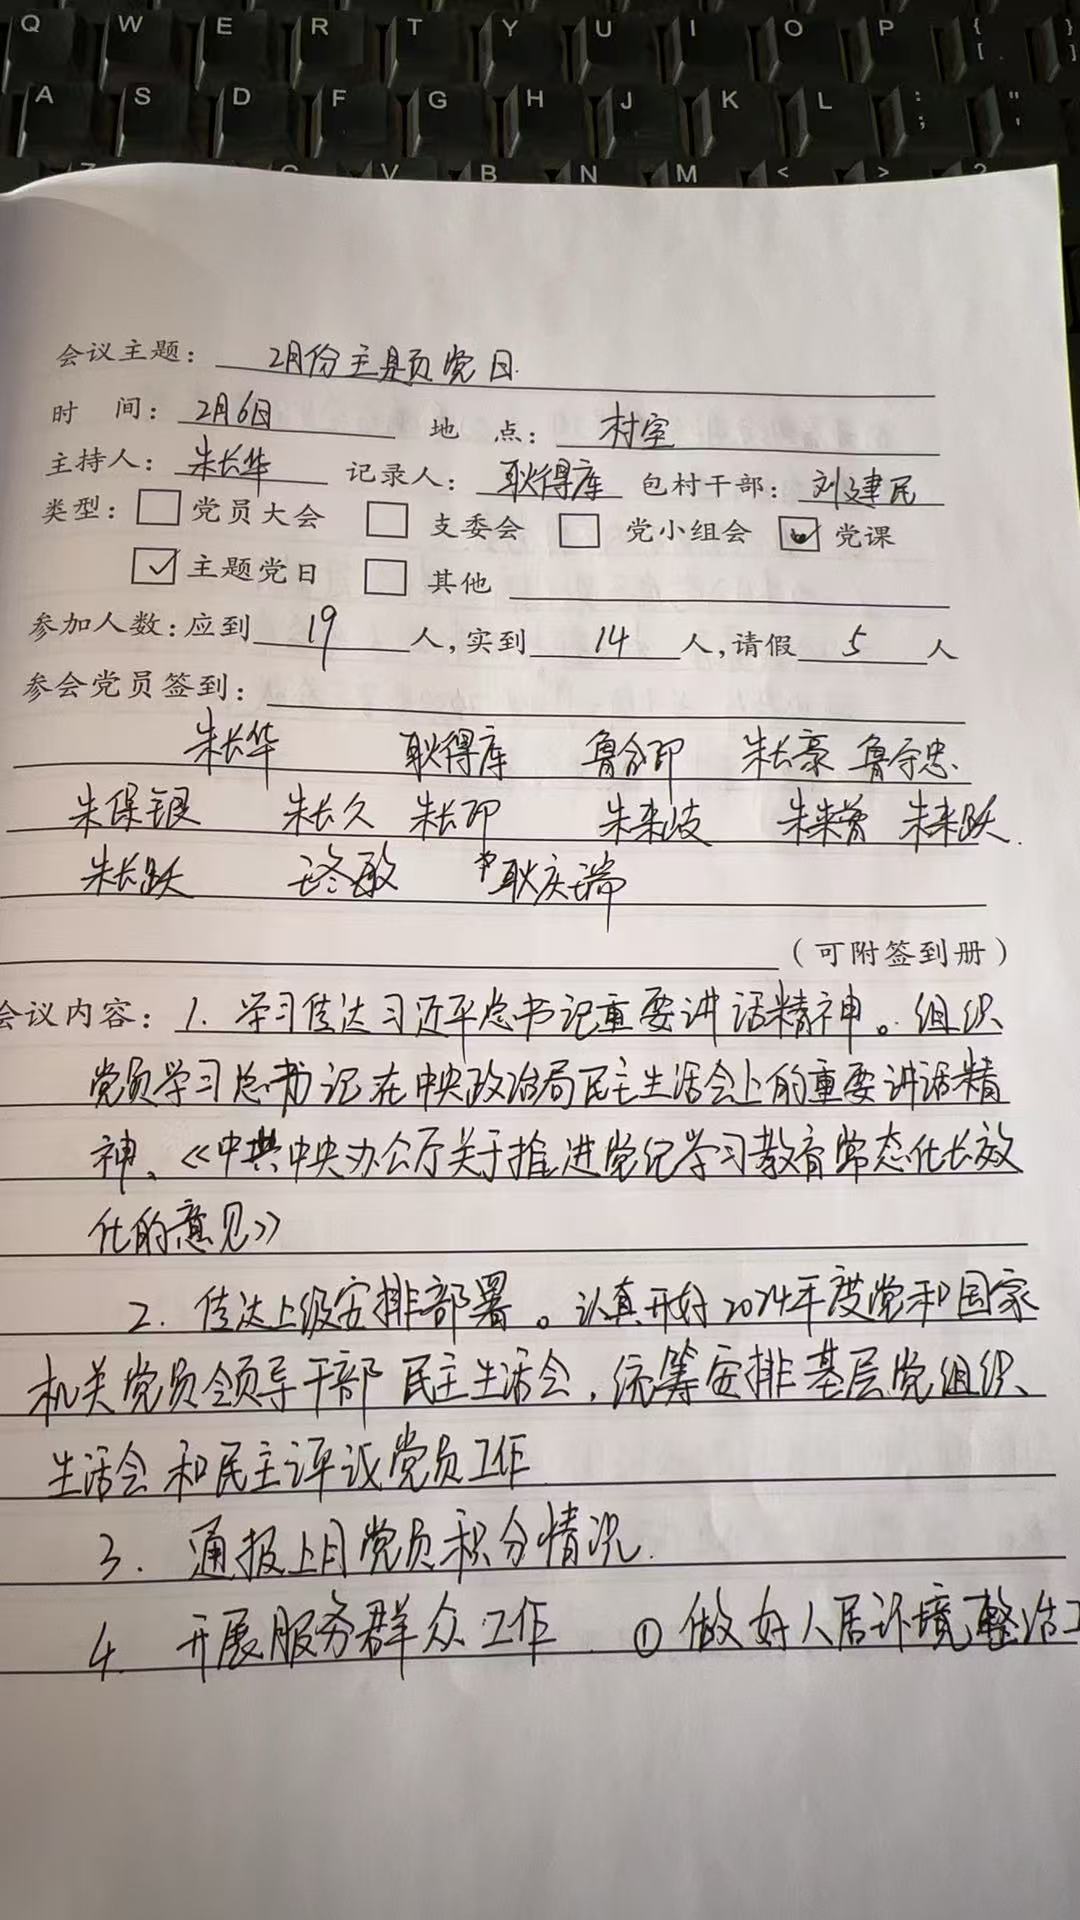 Q W E R T Y U I O P { [
A S D F G H J K L : ; " '
V B N M < > ?
会议主题：2月份主题党日.
时 间：2月6日 地 点：村室
主持人：朱长华 记录人：耿得库 包村干部：刘建民
类型：□党员大会 □ 支委会 □ 党小组会 ☑ 党课
☑ 主题党日 □ 其他
参加人数：应到 19 人，实到 14 人，请假 5 人
参会党员签到：
朱长华 耿得库 朱长豪 鲁守忠
朱保银 朱长久 朱长印 朱来波 朱来曾 朱来跃.
朱长跃 耿庆瑞
（可附签到册）
会议内容：1. 学习传达习近平总书记重要讲话精神。组织
党员学习总书记在中央政治局民主生活会上的重要讲话精
神、《中共中央办公厅关于推进党纪学习教育常态化长效
化的意见》
2. 传达上级安排部署。认真开好2024年度党和国家
机关党员领导干部民主生活会，统筹安排基层党组织
生活会和民主评议党员工作
3. 通报上月党员积分情况.
4. 开展服务群众工作. ①做好人居环境整治工